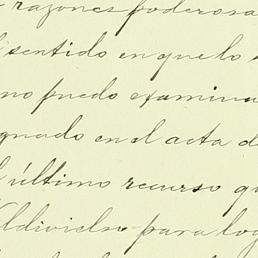 razones poderosa
sentido en que lo
no puedo examina
gnado en el acta d
último recurso qu
ldivielso para log